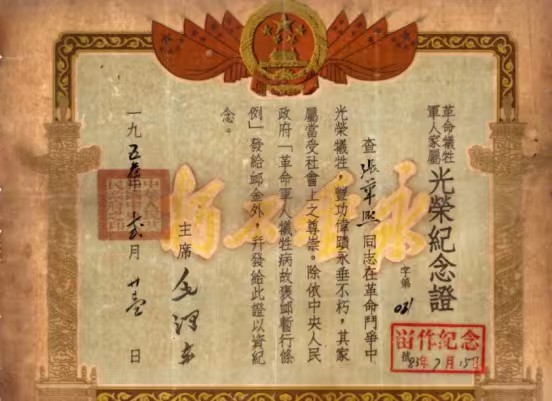 革命犧牲
軍人家屬
光榮紀念證
字第
號
查張華熙同志在革命鬥爭中
光榮犧牲,豐功偉蹟永垂不朽,其家
屬當受社會上之尊崇。除依中央人民
政府「革命軍人犧牲病故褒卹暫行條
例」發給卹金外,并發給此證以資紀
念。
主席 毛澤东
一九五 年 月 日
永垂不朽
畄作紀念
83年7月15日